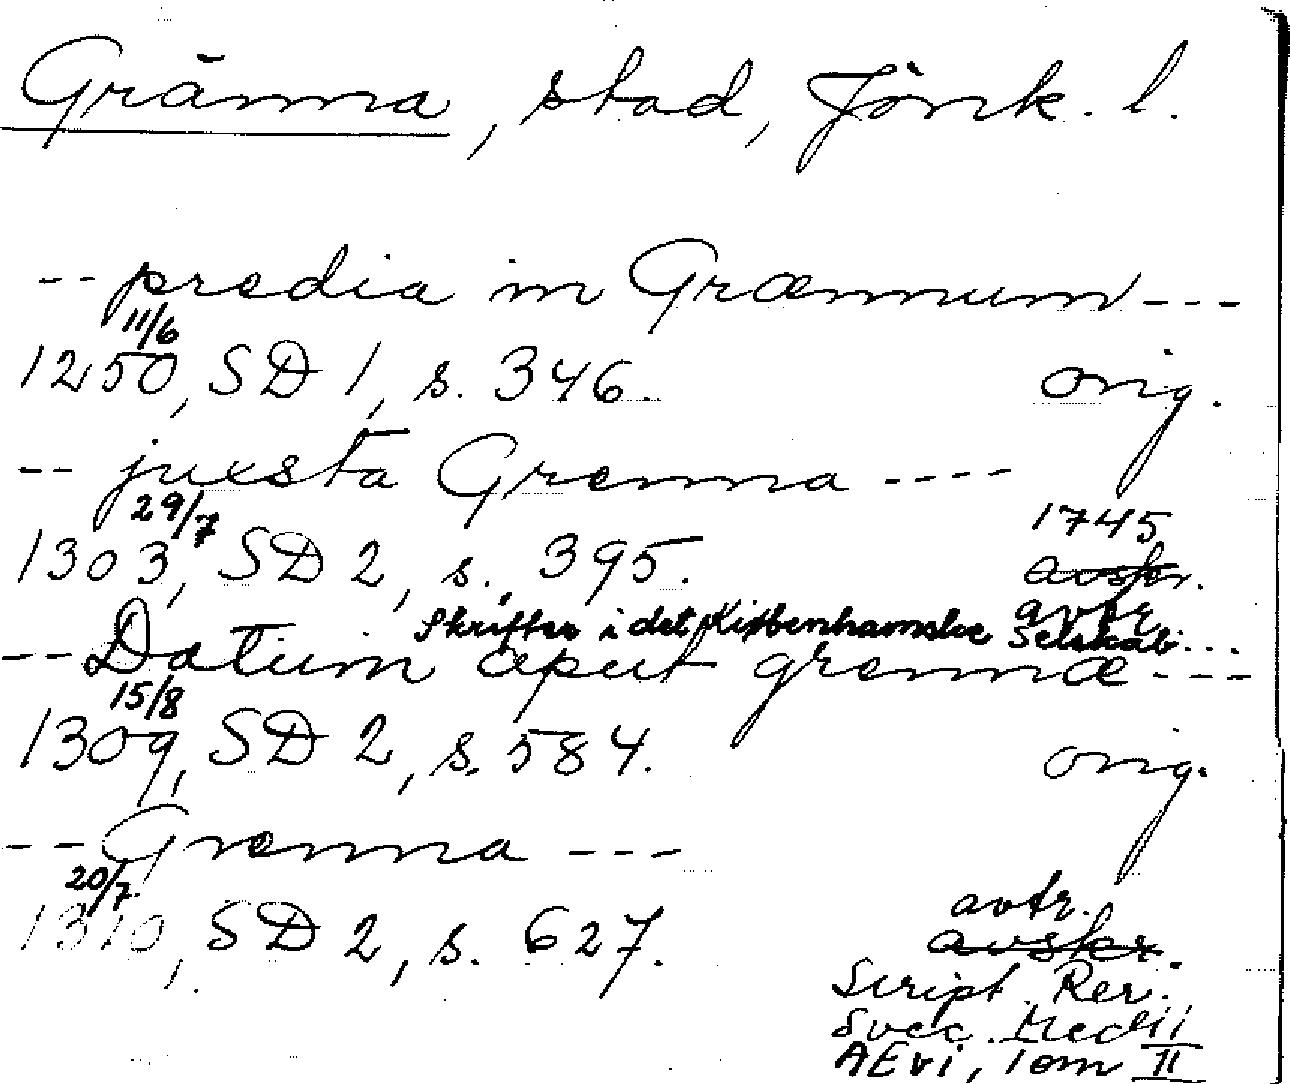 Gränna, stad, Jönk. l.
-- predia in Grænnum ---
11/6
1250, SD 1, s. 346. orig.
-- juxsta Grenna ----
29/7 1745
1303, SD 2, s. 395. avskr.
avtr.
Skrifter i det Kiøbenhamske Selskab...
-- Datum aput grennæ ---
15/8
1309, SD 2, s. 584. orig.
-- Grenna ---
20/7 avtr.
1310, SD 2, s. 627. avskr.
Script. Rer.
Svec. Medii
AEvi, Tom II